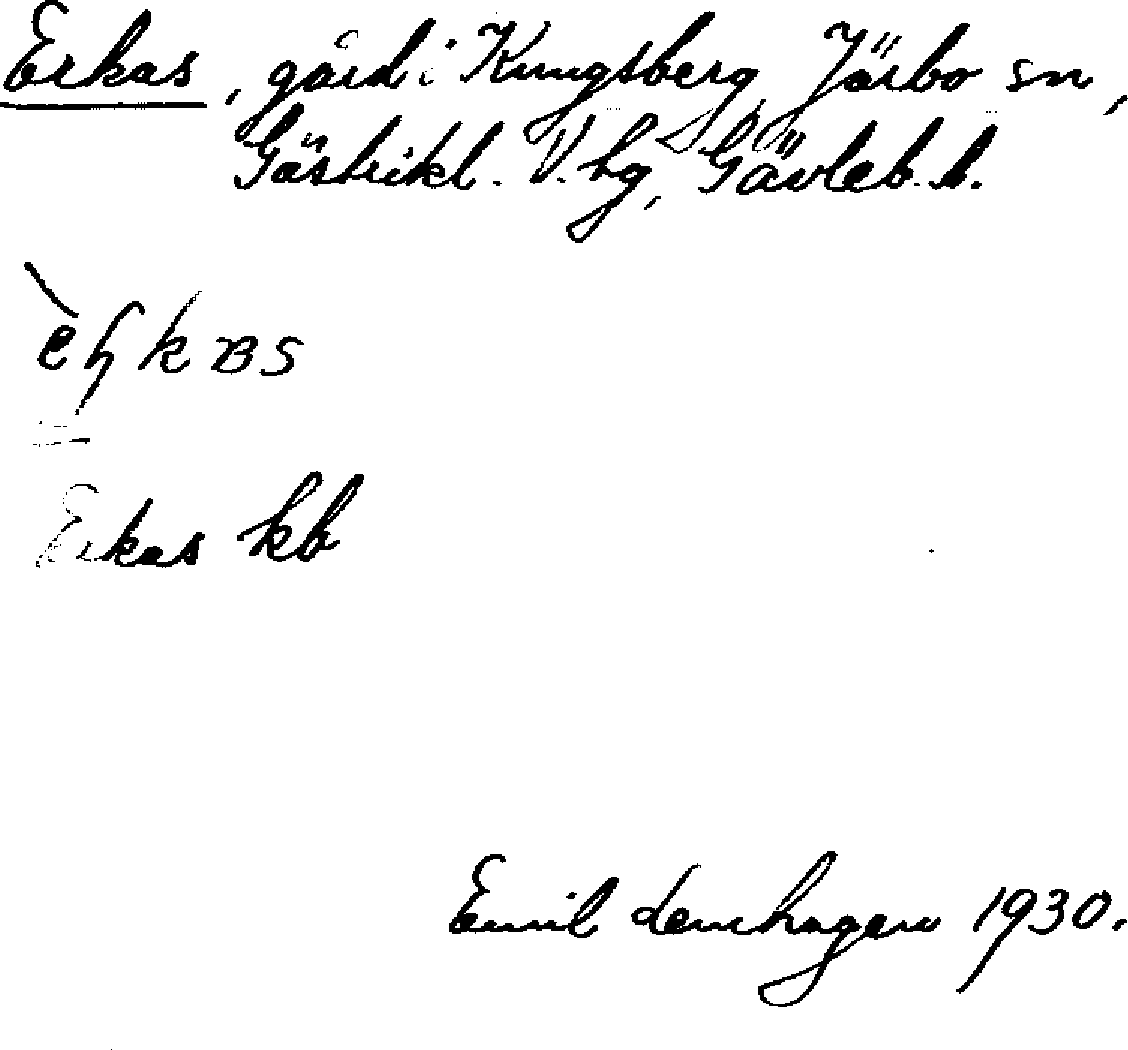 Erkas, gård i Kungsberg, Järbo sn,
Gästrikl. V. hg, Gävleb. l.
Erkas kb
Emil Lenhagen 1930.